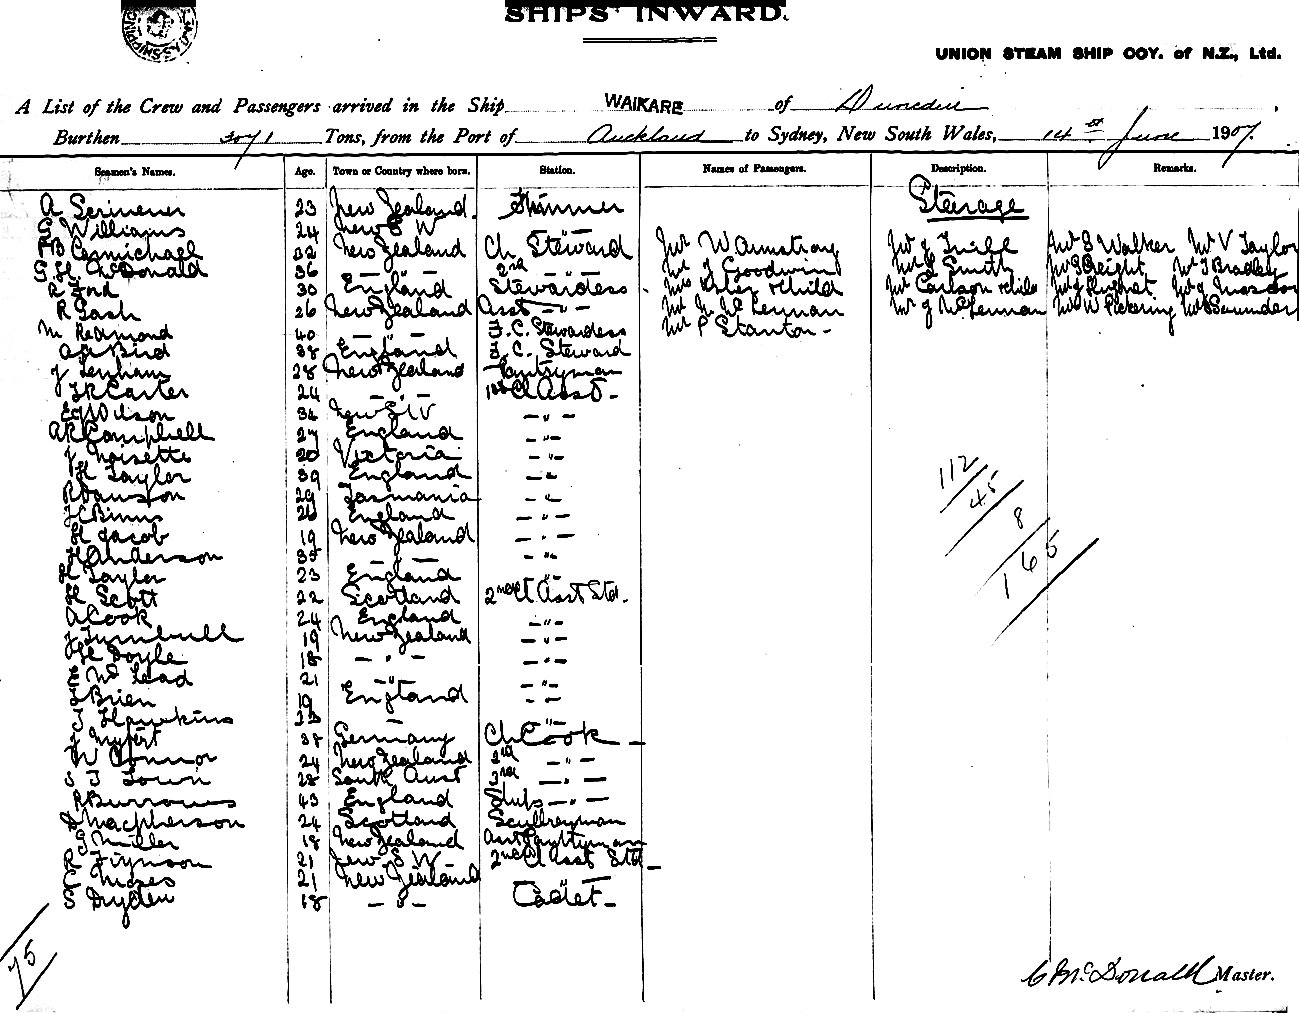 SHIPS' INWARD.
UNION STEAM SHIP COY. of N.Z., Ltd.
A List of the Crew and Passengers arrived in the Ship WAIKARE of Dunedin,
Burthen 3071 Tons, from the Port of Auckland to Sydney, New South Wales, 14th June 1907.
Seamen's Names. Age. Town or Country where born. Station. Names of Passengers. Description. Remarks.
Steerage
A Scrivener 23 New Zealand Trimmer
S Williams 24 New S W
Carmichael 32 New Zealand Ch Steward Mr W Armstrong Mr J Mr S Walker Mr V Taylor
S H McDonald 36 — " — 2nd — " — Mr J Goodwin Mr Smith Mr Mr J Bradley
R Ford 30 England Stewardess Mrs & child Mrs Carlson & child Mr J
R Gash 26 New Zealand Asst — " — Mr McLennan Mr J McLennan Mr W Pickering Mr Saunders
M Redmond 40 — " — F.C. Stewardess Mr P Stanton
Bird 38 England F.C. Steward
J Lenham 28 New Zealand Pantryman
Carter 24 — " — 1st Cl Asst
Wilson 34 New S W — " —
A R Campbell 27 England — " —
J Noisette 20 Victoria — " —
H Taylor 39 England — " —
R Dawson 29 Tasmania — " —
Binns England — " —
H Jacob 19 New Zealand — " —
H Anderson — " — — " —
H Taylor 23 England — " —
H Scott 22 Scotland 2nd Cl Asst Std.
A Cook 24 England — " —
J Turnbull 19 New Zealand — " —
Doyle 18 — " — — " —
E McLeod 21 — " — — " —
Brien 19 England — " —
J Hawkins — " —
J 38 Germany Ch Cook
W Connor 24 New Zealand 2nd — " —
S J Town 28 South Aust 3rd — " —
R Burrows 43 England Ships — " —
Macpherson 24 Scotland Sculleryman
G Miller 18 New Zealand Asst Pantryman
R 21 New S W 2nd Cl Asst Std
C Moses 21 New Zealand — " —
S Dryden 18 — " — Cadet
112
45
8
165
75
C McDonald Master.